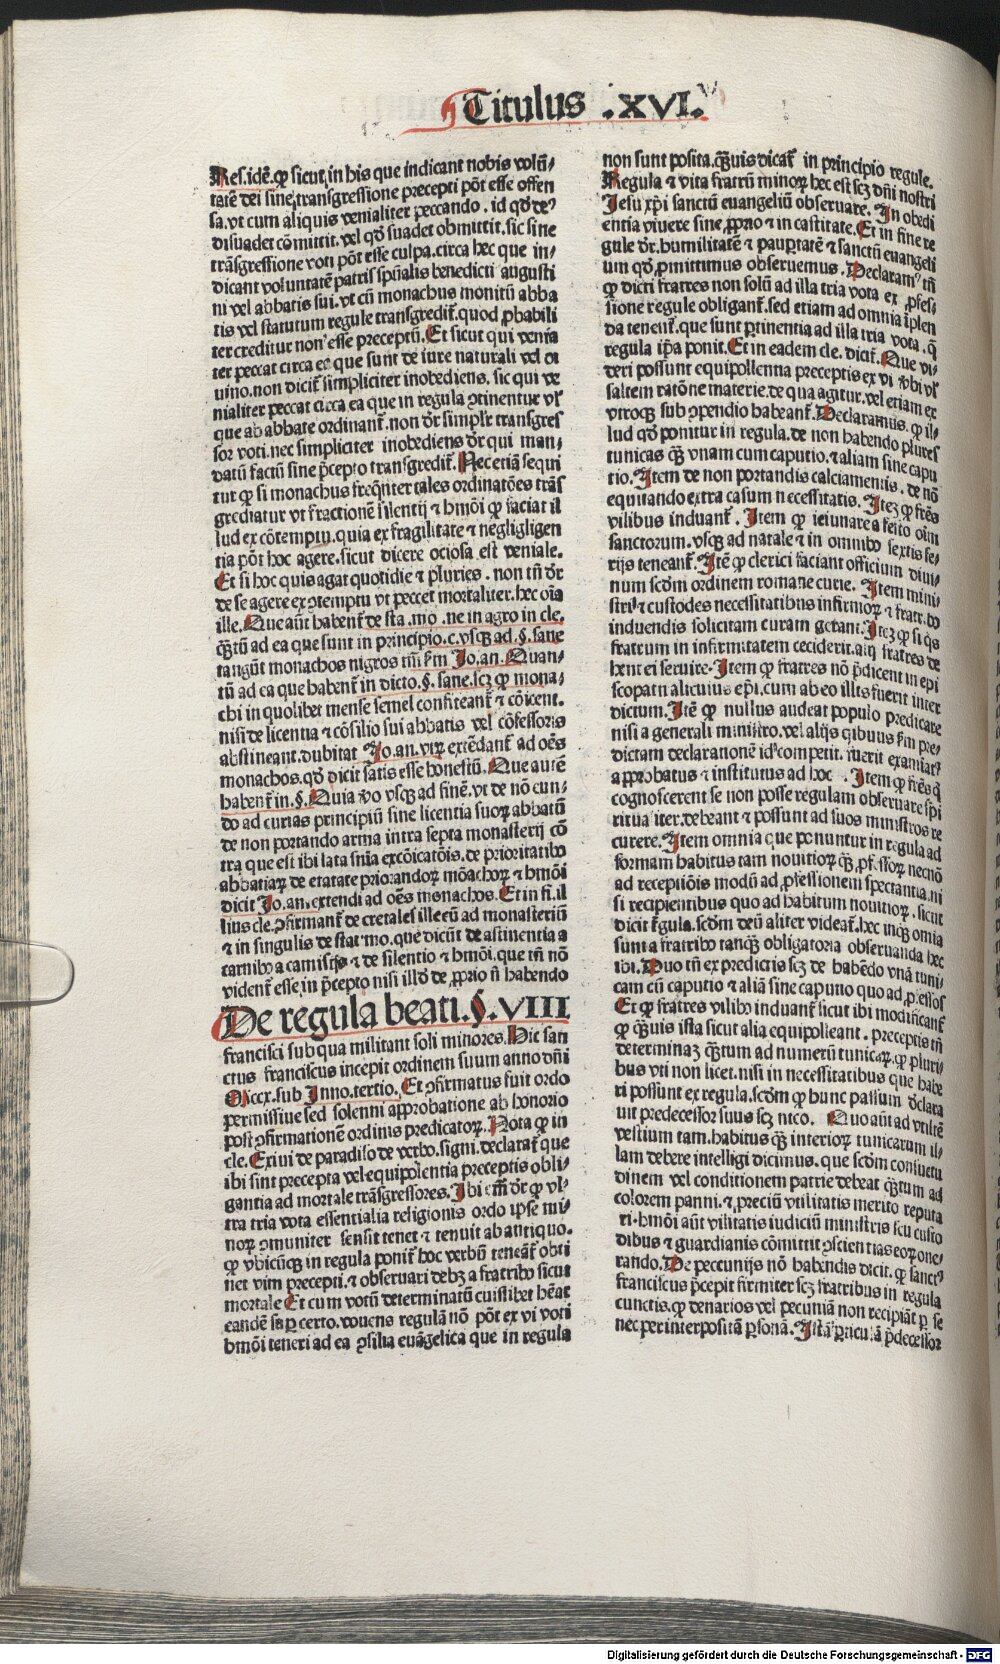 Titulus .XVI.
Res.idē.ꝙ sicut in his que indicant nobis volū⸗
tatē dei sine transgressione precepti pōt esse offen
sa.vt cum aliquis venialiter peccando . id qd̓ deꝰ
disuadet cōmittit.vel qd̓ suadet obmittit.sic sine
trāsgressione voti pōt esse culpa.circa hec que in⸗
dicant voluntatē patris sp̄ualis benedicti augusti
ni vel abbatis sui.vt cū monachus monitū abba
tis vel statutum regule transgredit᷑.quod ꝓbabili
ter creditur non esse preceptū.Et sicut qui venia
ter peccat circa ea que sunt de iure naturali vel di
uino.non dicit᷑ simpliciter inobediens. sic qui ve
nialiter peccat circa ea que in regula ꝯtinentur vꝉ
que ab abbate ordinant᷑.non dr̄ simplr̄ transgres
sor voti.nec simpliciter inobediens dr̄ qui man⸗
datū factū sine p̄cepto transgredit᷑.Nec etiā sequi
tur ꝙ si monachus freq̄nter tales ordinatōes trās
grediatur vt fractionē silentij ⁊ hmōi ꝙ faciat il
lud ex cōtemptu.quia ex fragilitate ⁊ negligligen
tia pōt hoc agere.sicut dicere ociosa est veniale.
Et si hoc quis agat quotidie ⁊ pluries . non tn̄ dr̄
de se agere ex ꝯtemptu vt peccet mortaliter.hec oīa
ille.Que aūt habent᷑ de sta.mo .ne in agro in cle.
qᷓtū ad ea que sunt in principio.c.vsqꝫ ad .§. sane
tangūt monachos nigros tm̄ ẜm Jo.an.Quan⸗
tū ad ea que habent᷑ in dicto.§.sane.scꝫ ꝙ mona⸗
chi in quolibet mense semel confiteant᷑ ⁊ cōicent.
nisi de licentia ⁊ cōsilio sui abbatis vel cōfessoris
abstineant.dubitat Jo.an.vtꝝ extēdant᷑ ad oēs
monachos.qd̓ dicit satis esse honestū.Que autē
habent᷑ in.§.Quia v̓o vsqꝫ ad finē.vt de nō eun⸗
do ad curias principiū sine licentia suoꝝ abbatū
de non portando arma intra septa monasterij cō
tra que est ibi lata snīa excōicatōis.de prioritatibꝰ
abbatiaꝝ de etatate priorandoꝝ mōachoꝝ ⁊ hmōi
dicit Jo.an.extendi ad oēs monachos.Et in fi.il
lius cle.ꝯfirmant᷑ de cretales ille cū ad monasteriū
⁊ in singulis de stat mo.que dicūt de astinentia a
carnibꝰ a camisijs ⁊ de silentio ⁊ hmōi.que tn̄ nō
vident᷑ esse in p̄cepto nisi illd̓ de ꝓprio n̄ habendo
De regula beati.§.VIII
francisci sub qua militant soli minores.Hic san
ctus franciscus incepit ordinem suum anno dn̄i
Mccx.sub Inno.tertio. Et ꝯfirmatus fuit ordo
permissiue sed solenni approbatione ab honorio
post ꝯfirmationē ordinis predicatoꝝ. Nota ꝙ in
cle. Exiui de paradiso de verbo.signi.declarat᷑ que
ibi sint precepta vel equipolentia preceptis obli⸗
gantia ad mortale trāsgressores.Ibi em̄ dr̄ ꝙ vl⸗
tra tria vota essentialia religionis ordo ipse mi⸗
noꝝ ꝯmuniter sensit tenet ⁊ tenuit ab antiquo.
ꝙ vbicūqꝫ in regula ponit᷑ hoc verbū teneāt᷑ obti
net vim precepti.⁊ obseruari debꝫ a fratribꝰ sicut
mortale Et cum votū determinatū cuiuslibet hēat
eandē sup certo.vouens regulā nō pōt ex vi voti
hmōi teneri ad ea ꝯsilia euāgelica que in regula
non sunt posita.qᷓuis dicat᷑ in principio regule.
Regula ⁊ vita fratrū minoꝝ hec est scꝫ dn̄i nostri
Jesu xp̄i sanctū euangeliū obseruare. In obedi
entia viuere sine ꝓprio ⁊ in castitate.Et in fine re
gule dr̄.humilitatē ⁊ pauꝑtatē ⁊ sanctū euangeli
um qd̓ ꝓmittimus obseruemus. Declaramꝰ tn̄
ꝙ dicti fratres non solū ad illa tria vota ex ꝓfes⸗
sione regule obligant᷑.sed etiam ad omnia īplen
da tenent᷑.que sunt ꝑtinentia ad illa tria vota .q̄
regula ip̄a ponit.Et in eadem cle. dicit᷑. Que vi⸗
deri possunt equipollentia preceptis ex vi v̓bi vꝉ
saltem ratōne materie.de qua agitur.vel etiam ex
vtroqꝫ sub ꝯpendio habeant᷑.Declaramus.ꝙ il⸗
lud qd̓ ponitur in regula.de non habendo plures
tunicas qᷓꝫ vnam cum caputio.⁊ aliam sine capu
tio. Item de non portandis calciamentis. de nō
equitando extra casum necessitatis. Itē ꝙ fr̄es
vilibus induant᷑ . Item ꝙ ieiunare a festo oīm
sanctorum.vsqꝫ ad natale ⁊ in omnibꝰ sextis fe⸗
rijs teneant᷑. Itē ꝙ clerici faciant officium diui⸗
num scd̓m ordinem romane curie. Item mini⸗
stri ⁊ custodes necessitatibus infirmoꝝ ⁊ fratr̄.bꝰ
induendis solicitam curam gerant. Itē ꝙ si q̄s
fratrum in infirmitatem ceciderit.alij fratres de
bent ei seruire. Item ꝙ fratres nō p̄dicent in epi
scopatu alicuius ep̄i.cum ab eo illis fuerit inter
dictum. Itē ꝙ nullus audeat populo predicare
nisi a generali ministro.vel alijs qibus ẜm pre⸗
dictam declarationē id competit. fuerit examīatꝰ
approbatus ⁊ institutus ad hoc . Item ꝙ fr̄es q̄
cognoscerent se non posse regulam obseruare spi
ritualiter.debeant ⁊ possunt ad suos ministros re
curere. Item omnia que ponuntur in regula ad
formam habitus tam nouitioꝝ qᷓꝫ ꝓfessoꝝ necnō
ad receptiōis modū ad ꝓfessionem spectantia.ni
si recipientibus quo ad habitum nouitioꝝ. sicut
dicit r̄gula.scd̓m deū aliter videat᷑.hec inqꝫ omia
sunt a fratribꝰ tanqꝫ obligatoria obseruanda hec
ibi.Duo tn̄ ex predictis scꝫ de habēdo vnā tuni⸗
cam cū caputio ⁊ aliā sine caputio quo ad ꝓfessos
Et ꝙ fratres vilibꝰ induant᷑ sicut ibi modificant᷑
ꝙ qᷓuis ista sicut alia equipolleant . preceptis tn̄
determinaꝫ qᷓtum ad numerū tunicaꝝ.ꝙ pluri
bus vti non licet.nisi in necessitatibus que habe
ri possunt ex regula.scd̓m ꝙ hunc passum declara
uit predecessor suus scꝫ nico. Quo aūt ad vilitē
vestium tam.habitus qᷓꝫ interioꝝ tunicarum il⸗
lam debere intelligi dicimus.que scd̓m consuetu
dinem vel conditionem patrie debeat qᷓtum ad
colorem panni.⁊ preciū vilitatis merito reputa
ri.hmōi aūt vilitatis iudiciū ministris seu custo
dibus ⁊ guardianis cōmittit ꝯscientias eoꝝ one⸗
rando.De peccunijs nō habendis dicit.ꝙ sanctꝰ
franciscus p̄cepit firmiter scꝫ fratribus in regula
cunctis.ꝙ denarios vel pecuniā non recipiāt ꝑ se
nec per interpositā ꝑsonā. Istā ꝑticulā p̄decessor
Digitalisierung gefördert durch die Deutsche Forschungsgemeinschaft - DFG